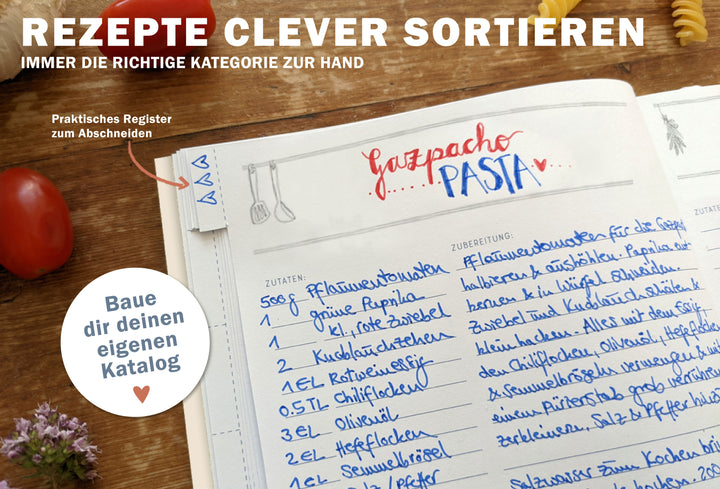 REZEPTE CLEVER SORTIEREN
IMMER DIE RICHTIGE KATEGORIE ZUR HAND
Praktisches Register
zum Abschneiden
Gazpacho
PASTA
ZUTATEN:
500g Pflaumentomaten
1 grüne Paprika
1 kl. rote Zwiebel
2 Knoblauchzehen
1 EL Rotweinessig
0.5 TL Chiliflocken
3 EL Olivenöl
2 EL Hefeflocken
1 EL Semmelbrösel
Salz/Pfeffer
ZUBEREITUNG:
Pflaumentomaten für die
halbieren & aushöhlen. Paprika
kernen & in Würfel schneiden.
Zwiebel und Knoblauch schälen &
klein hacken. Alles mit dem Essig,
den Chiliflocken, Olivenöl, Hefeflocken
& Semmelbröseln vermengen &
einem Pürierstab grob
zerkleinern. Salz & Pfeffer
Salzwasser zum Kochen
ZUTATEN
Baue
dir deinen
eigenen
Katalog